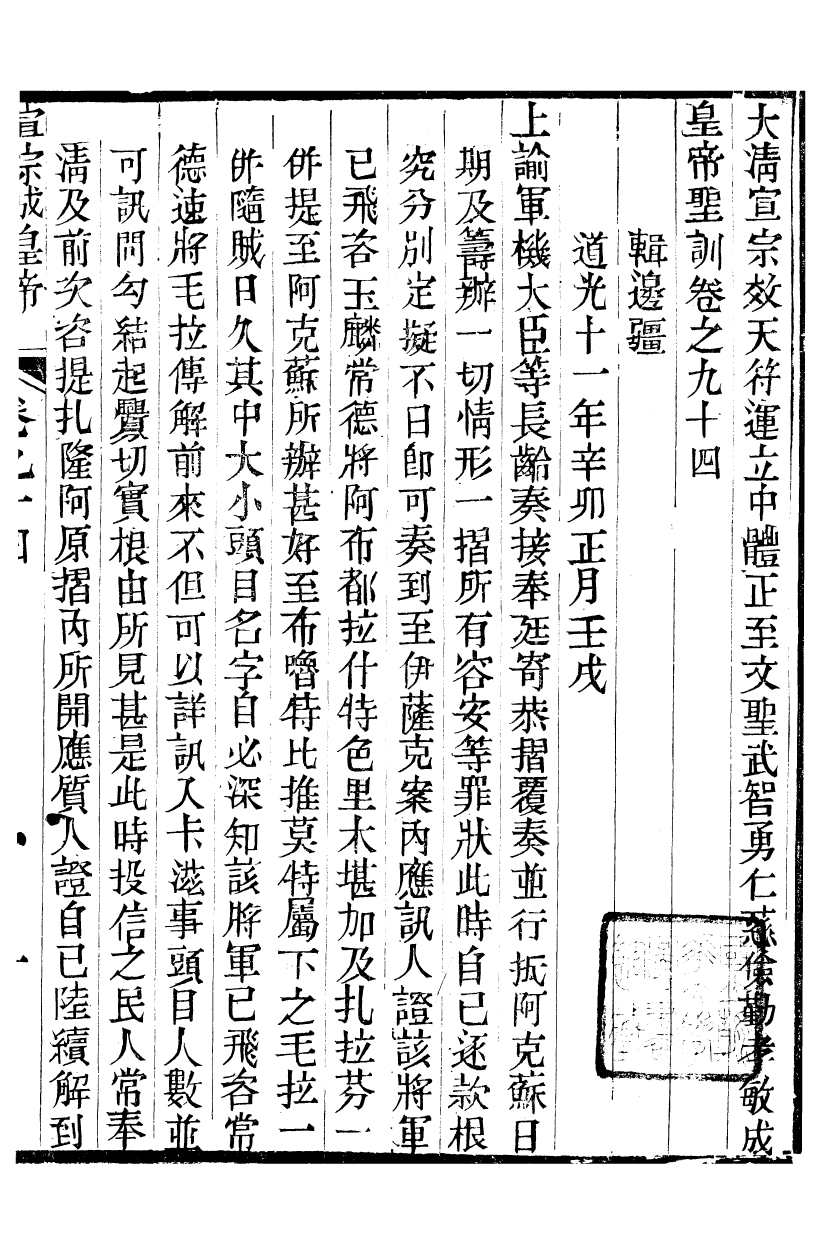 大清宣宗效天符運立中體正至文聖武智勇仁慈儉勤孝敏成
皇帝聖訓卷之九十四
輯邊疆
道光十一年辛卯正月壬戌
上諭軍機大臣等長齡奏接奉廷寄恭摺覆奏並行抵阿克蘇日
期及籌辦一切情形一摺所有容安等罪狀此時自已逐款根
究分別定擬不日卽可奏到至伊薩克案內應訊人證該將軍
已飛咨玉麟常德將阿布都拉什特色里木堪加及扎拉芬一
併提至阿克蘇所辦甚好至布嚕特比推莫特屬下之毛拉一
併隨賊日久其中大小頭目名字自必深知該將軍已飛咨常
德速將毛拉傳解前來不但可以詳訊入卡滋事頭目人數並
可訊問勾結起釁切實根由所見甚是此時投信之民人常奉
清及前次咨提扎隆阿原摺內所開應質人證自已陸續解到
宣宗成皇帝
卷之九十四
一